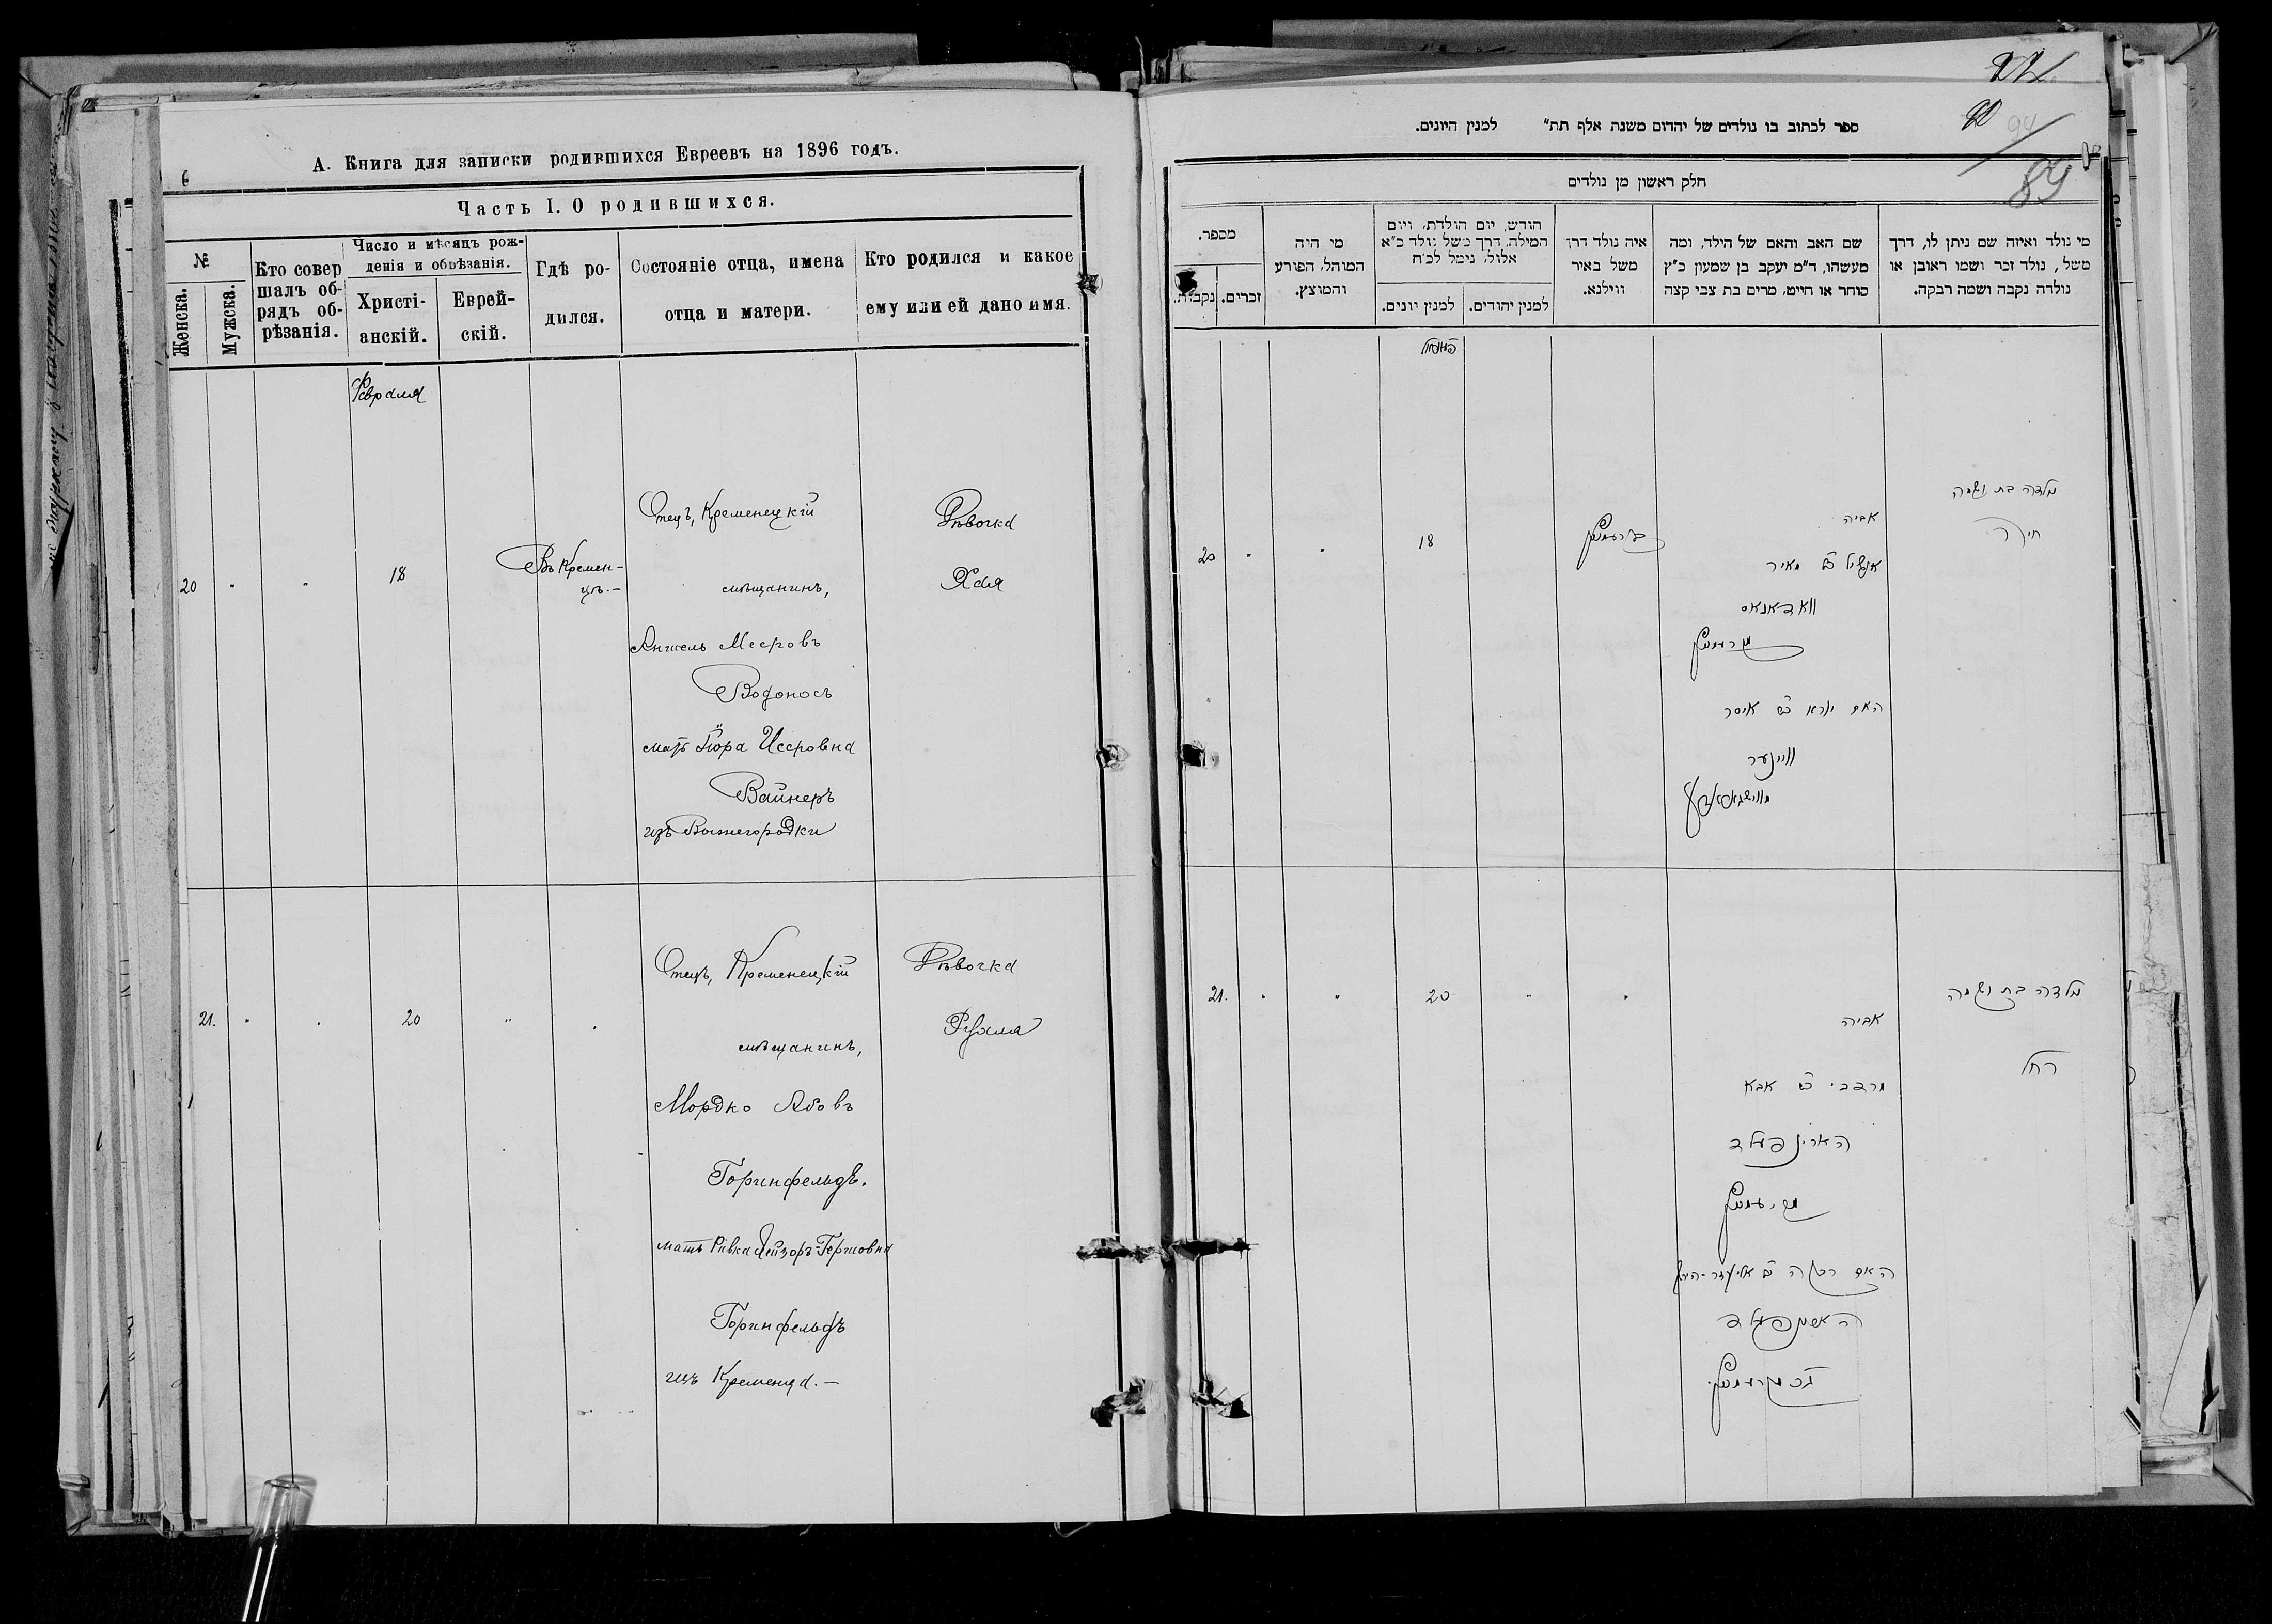 А. Книга для записки родившихся Евреевъ на 1896 годъ.
6
Часть I. О родившихся.
№
Женска.
Мужска.
Кто совер
шалъ об-
рядъ об-
рѣзанія.
Число и мѣсяцъ рож-
денія и обрѣзанія.
Христі-
анскій.
Еврей-
скій.
Гдѣ ро-
дился.
Состояніе отца, имена
отца и матери.
Кто родился и какое
ему или ей дано имя.
Февраля
20 " " 18
Въ Кремен-
цѣ.-
Отецъ, Кременецкій
мѣщанинъ,
Аншель Меeровъ
Водоносъ
мать Исеровна
Вайнеръ
изъ Вышегородки
Дѣвочка
Хая
21. " " 20 " "
Отецъ, Кременецкій
мѣщанинъ,
Мордко Абовъ
Горинфельдъ.
мать Ривка Лейзоръ-Гершовна
Горинфельдъ
изъ Кременца.-
Дѣвочка
Рухля
22
90
94
89
ספר לכתוב בו נולדים של יהדום משנת אלף תת״ למנין היונים.
חלק ראשון מן נולדים
מי נולד ואיזה שם ניתן לו, דרך
משל, נולד זכר ושמו ראובן או
נולדה נקבה ושמה רבקה.
שם האב והאם של הילד, ומה
מעשהו, ד״מ יעקב בן שמעון כ״ץ
סוחר או חייט, מרים בת צבי קצה
איה נולד דרך
משל באיר
ווילנא.
חודש, יום הולדת, ויום
המילה, דרך משל נולד כ״א
אלול, נימל לכ״ח
למנין יהודים.
למנין יונים.
מי היה
המוהל, הפורע
והמוצץ.
מספר.
זכרים.
נקבות.
20 " " 18
נולדה בת ושמה
חיה
אביה
אנשיל ב״ר מאיר
וואדאנאס
קרעמניץ
איסר
וויינער
21. " " 20 " "
נולדה בת ושמה
רחל
אביה
מרדכי ב״ר אבא
הארינפעלד
קרעמניץ
האם רבקה
הארינפעלד